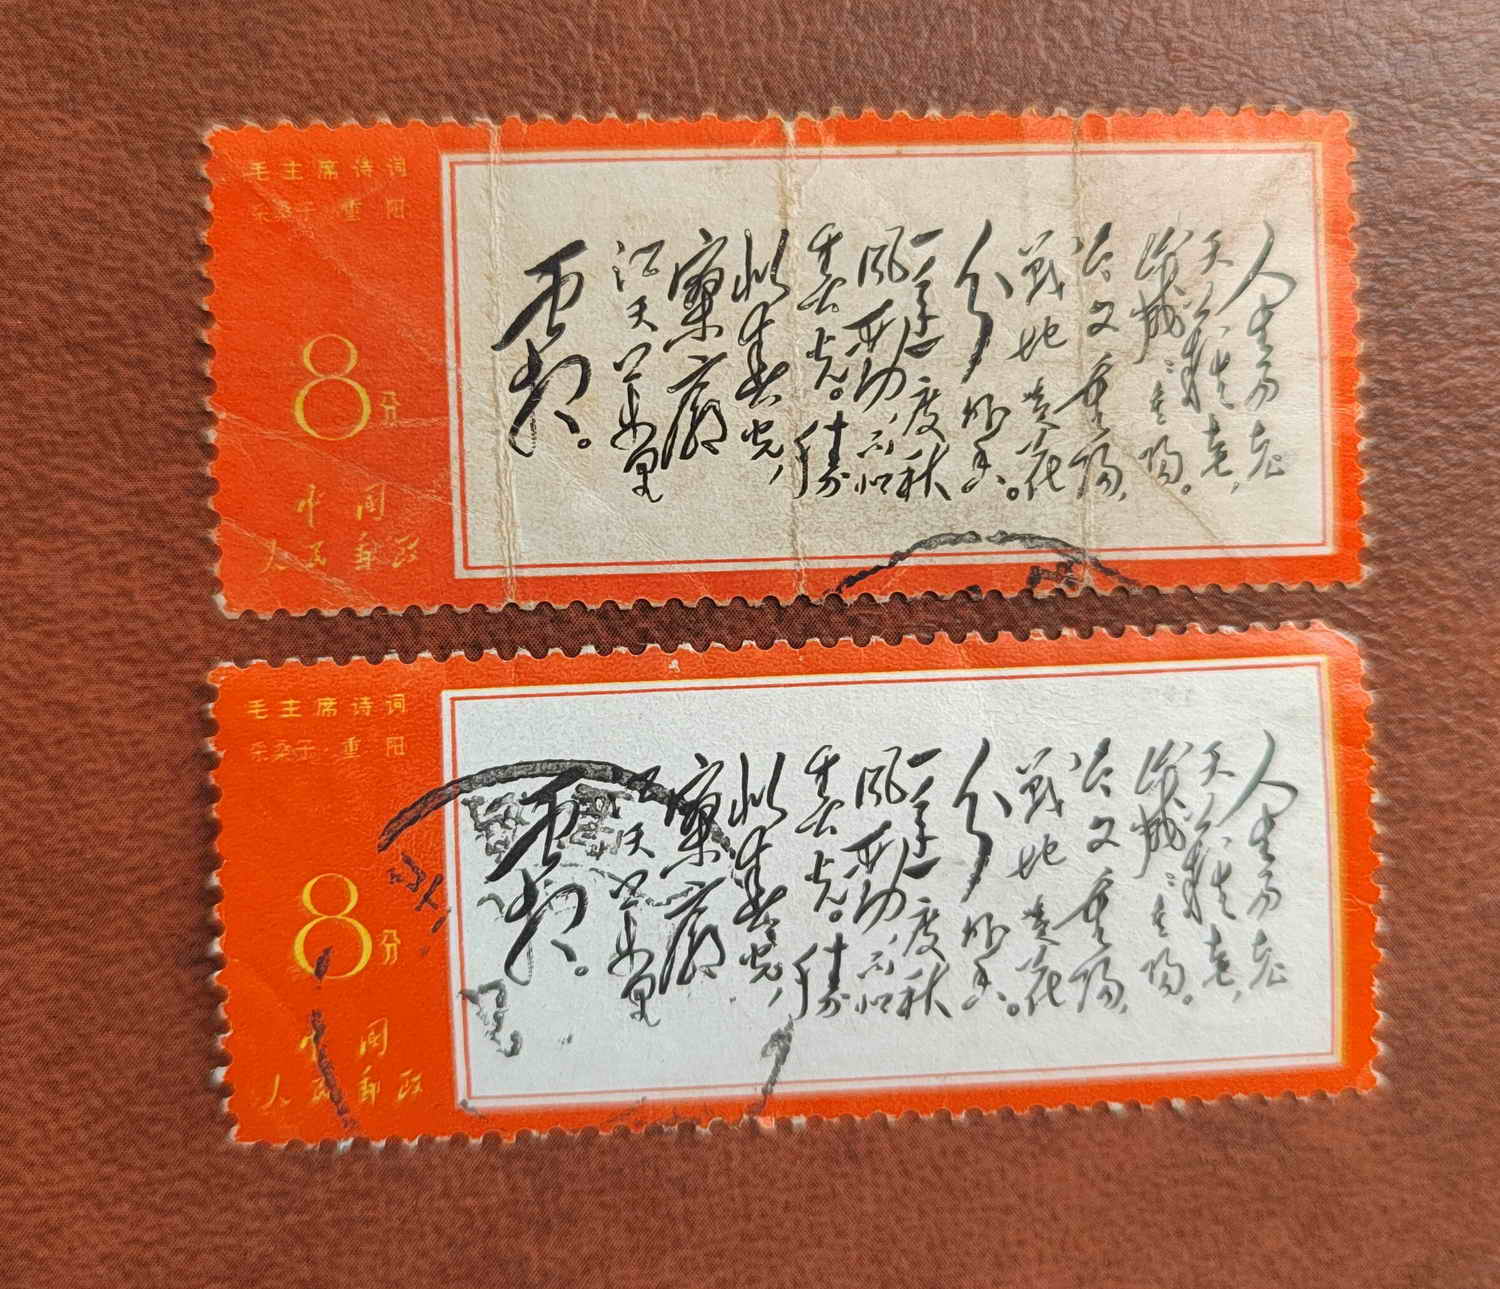 毛主席诗词
采桑子·重阳
8分
中国
人民郵政
人生易老
天难老,
歲歲重陽。
今又重陽,
戰地黄花
分外香。
一年一度秋
風勁,不似
春光。勝
似春光,
寥廓
江天萬里
霜。
毛主席诗词
采桑子·重阳
8分
中国
人民郵政
人生易老
天难老,
歲歲重陽。
今又重陽,
戰地黄花
分外香。
一年一度秋
風勁,不似
春光。勝
似春光,
寥廓
江天萬里
霜。